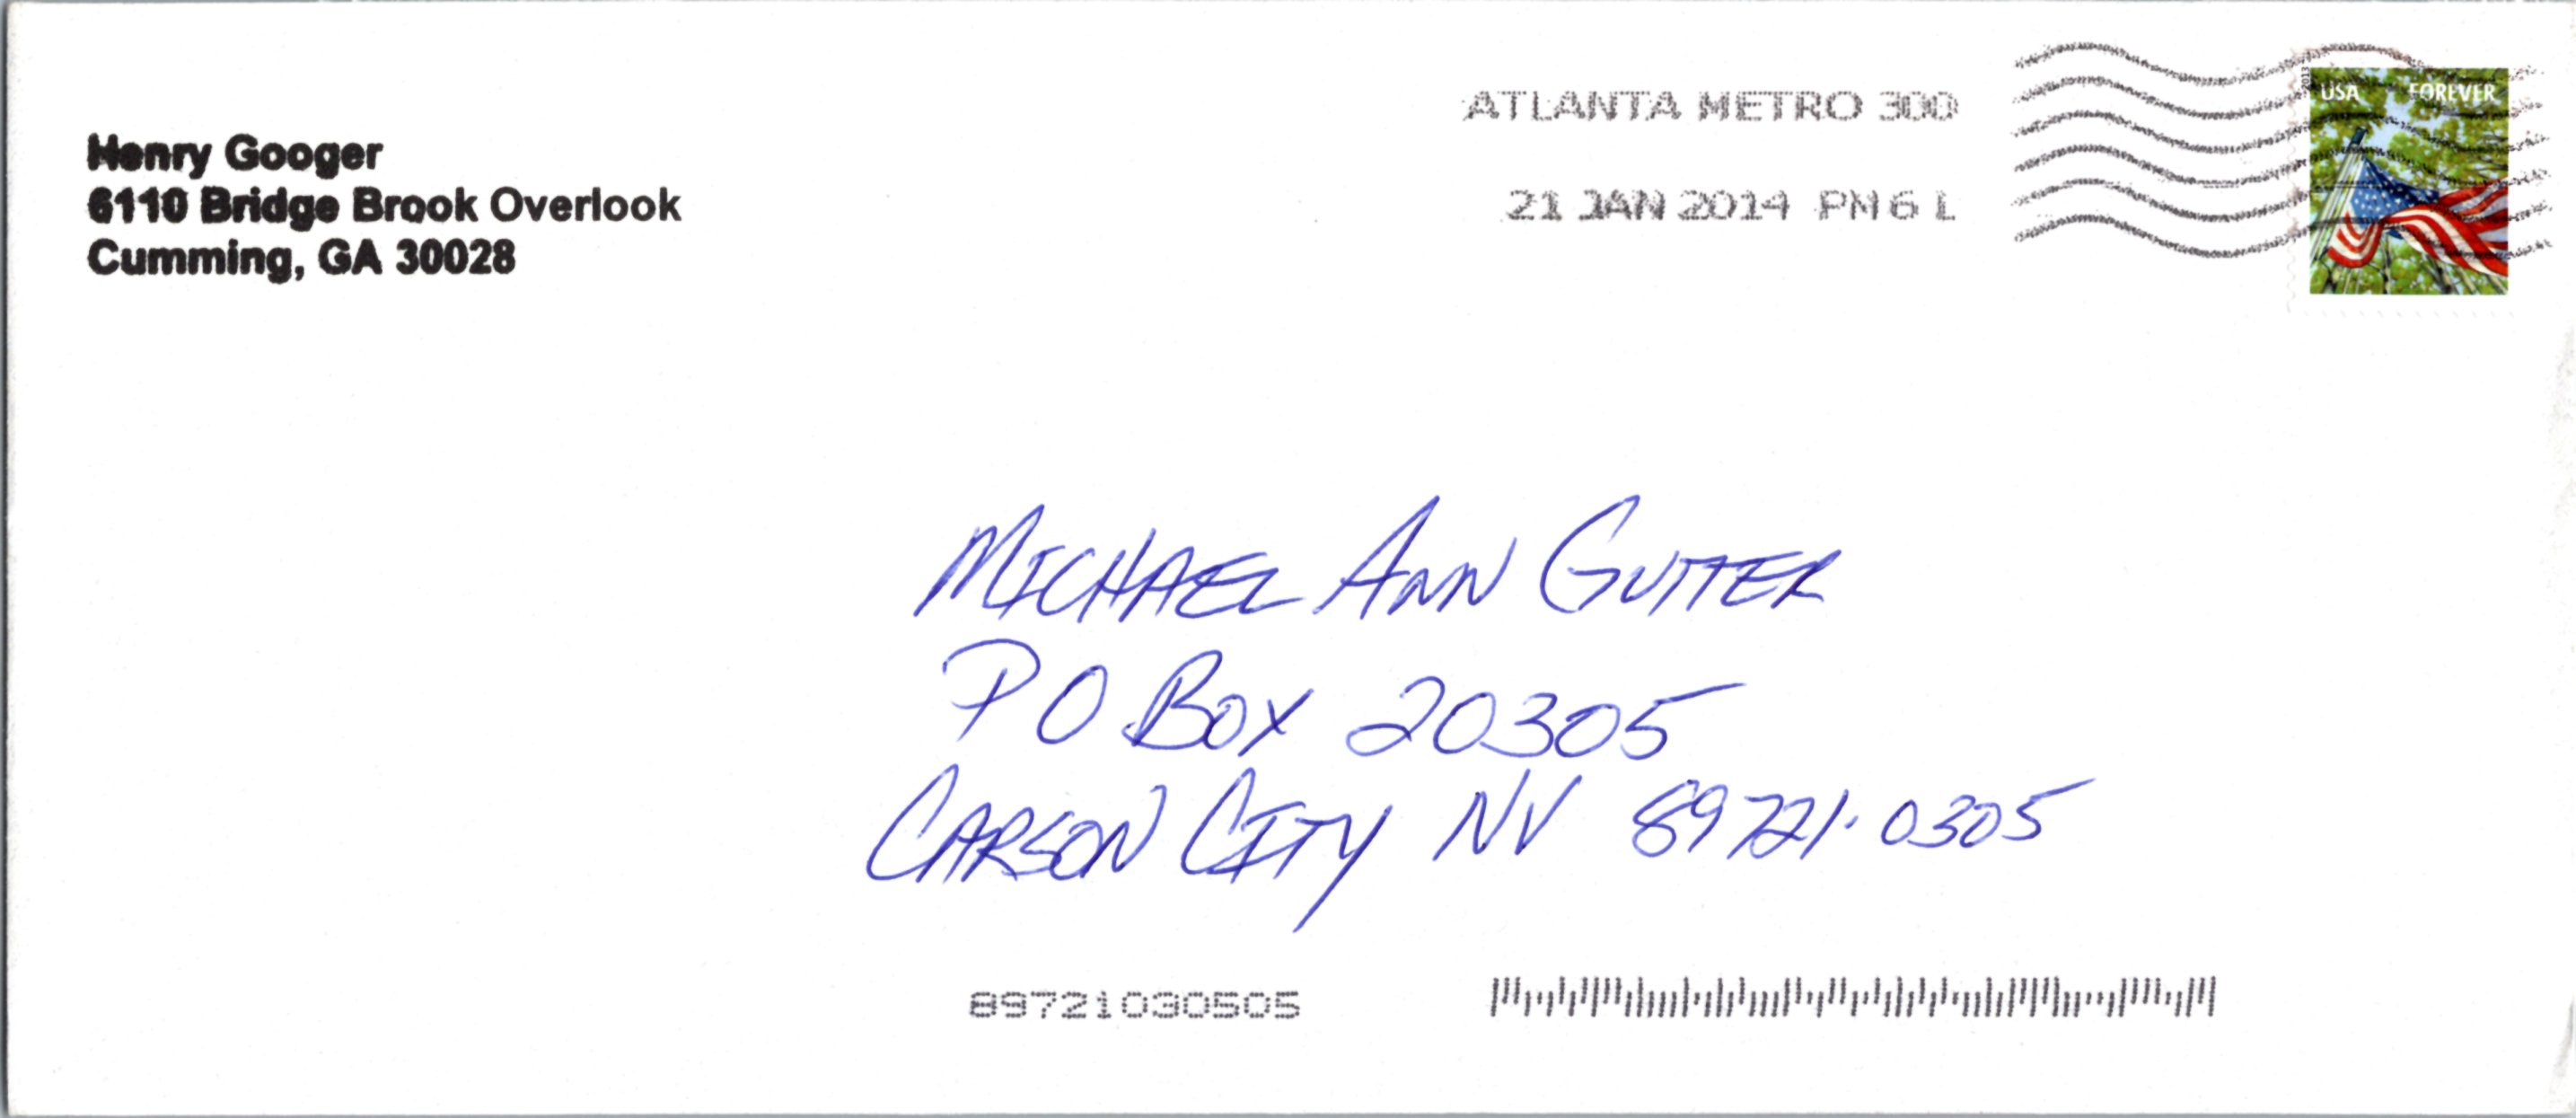 Henry Googer
6110 Bridge Brook Overlook
Cumming, GA 30028
ATLANTA METRO 300
21 JAN 2014 PM 6 L
2013
USA FOREVER
MICHAEL ANN GUTTER
PO BOX 20305
CARSON CITY NV 89721-0305
89721030505